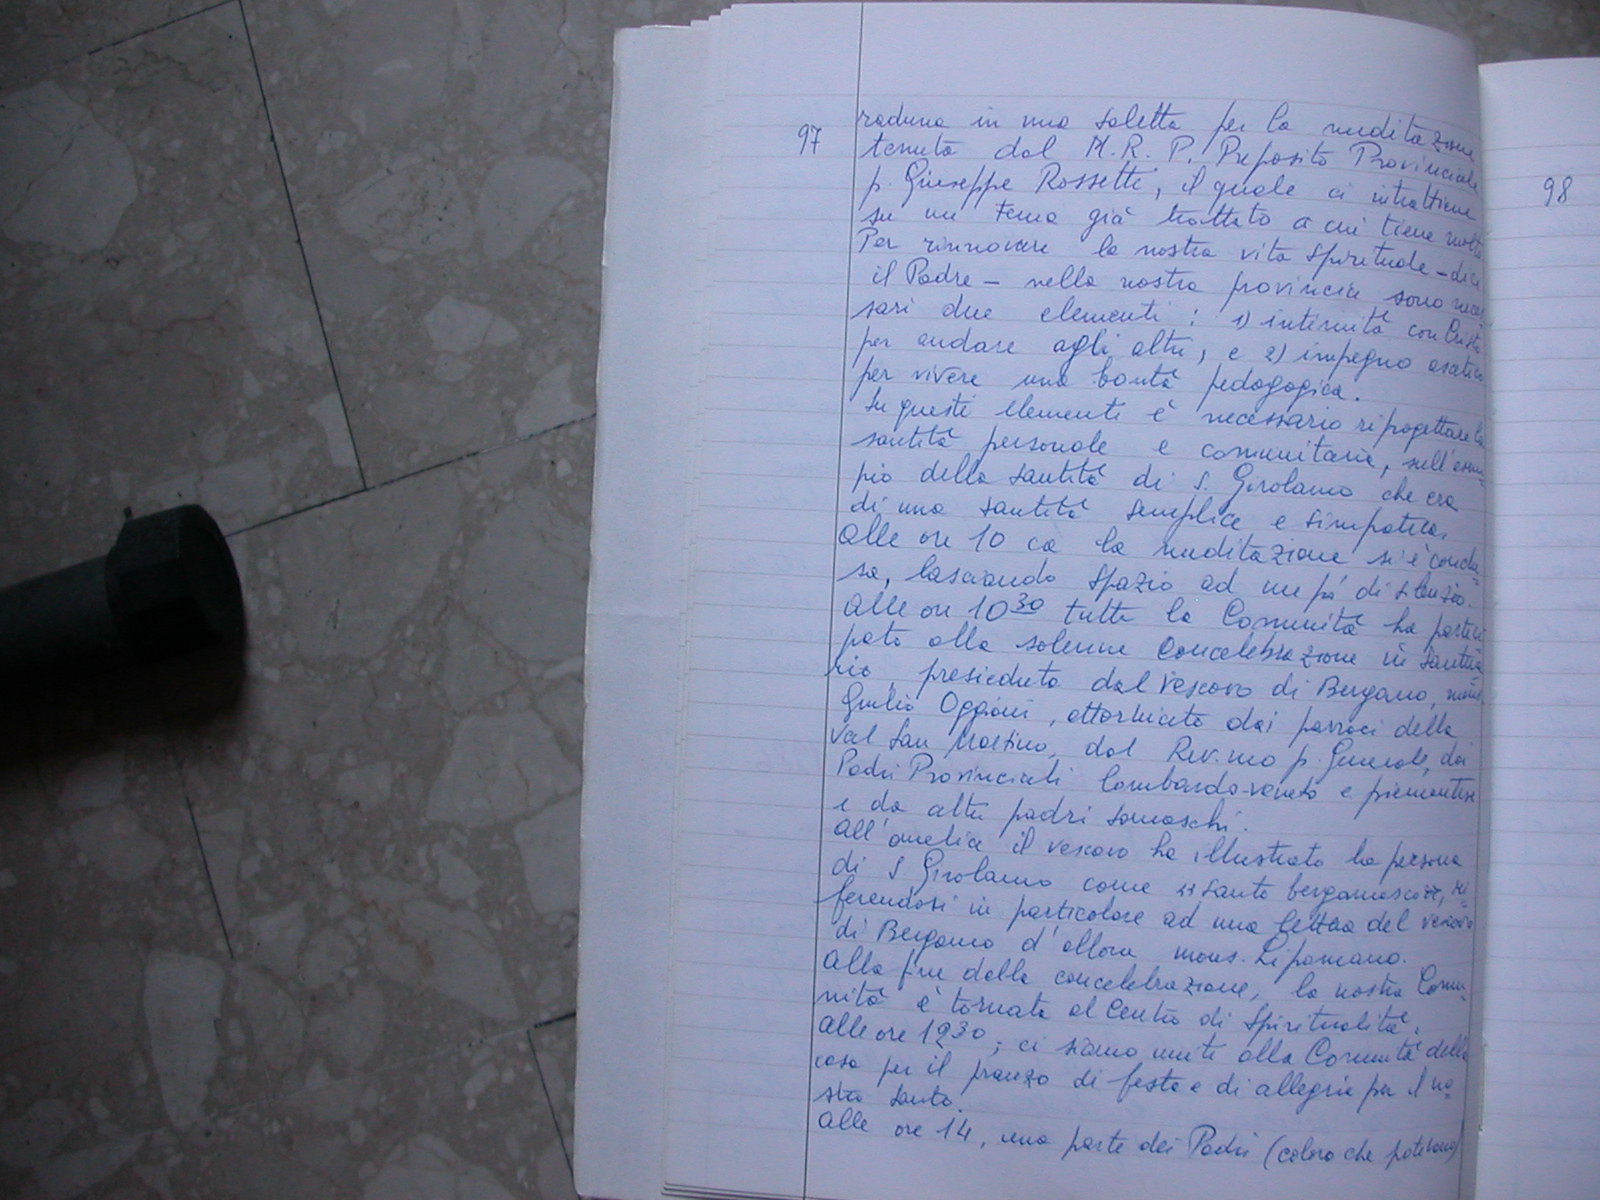 97
raduna in una saletta per la meditazione
tenuta dal M. R. P. Preposito Provinciale
p. Giuseppe Rossetti, il quale ci intrattiene
su un tema già trattato a cui tiene molto.
Per rinnovare la nostra vita spirituale - dice
il Padre - nella nostra provincia sono neces
sari due elementi: 1) intimità con Cristo
per andare agli altri, e 2) impegno ascetico
per vivere una bontà pedagogica.
Su questi elementi è necessario riprogettare la
santità personale e comunitaria, sull'esem
pio della santità di S. Girolamo che era
di una santità semplice e simpatica.
Alle ore 10 ca la meditazione si è conclu=
sa, lasciando spazio ad un pò di silenzio.
Alle ore 10 30 tutta la Comunità ha parteci
pato alla solenne Concelebrazione in Santua
rio, presieduta dal Vescovo di Bergamo, mons.
Giulio Oggioni, attorniato dai parroci della
Val San Martino, dal Rev.mo p. Generale, dai
Padri Provinciali lombardo-veneto e piemontese
e da altri padri somaschi.
All'omelia il vescovo ha illustrato la persona
di S Girolamo come "santo bergamasco", ri=
ferendosi in particolare ad una lettera del vescovo
di Bergamo d'allora mons. Lipomano.
Alla fine della concelebrazione, la nostra Comu=
nità è tornata al Centro di Spiritualità.
Alle ore 12 30; ci siamo uniti alla Comunità della
casa per il pranzo di festa e di allegria per il no=
stro Santo.
Alle ore 14, una parte dei Padri (coloro che potevano)
98